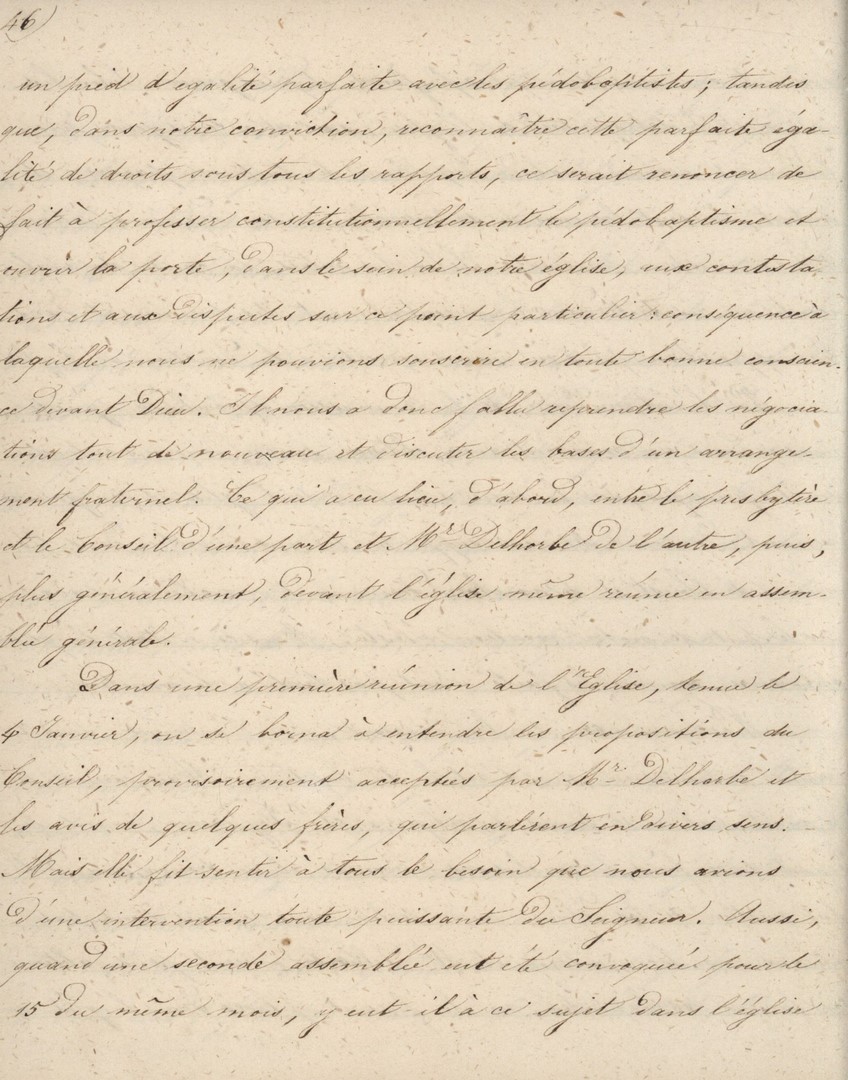 46)
un pied d'egalité parfaite avec les pédobaptistes; tandis
que, dans notre conviction, reconnaître cette parfaite éga-
lité de droits sous tous les rapports, ce serait renoncer de
fait à professer constitutionnellement le pédobaptisme et
ouvrir la porte, dans le sein de notre église, aux contesta-
tions et aux disputes sur ce point particulier: conséquence à
laquelle nous ne pouvions souscrire en toute bonne conscien-
ce devant Dieu. Il nous a donc fallu reprendre les négocia-
tions tout de nouveau et discuter les bases d'un arrange-
ment fraternel. Ce qui a eu lieu, d'abord, entre le presbytère
et le Conseil d'une part et Mr. Delhorbe de l'autre, puis,
plus généralement, devant l'église même réunie en assem-
blée générale.
Dans une première réunion de l'Eglise, tenue le
4 Janvier, on se borna à entendre les propositions du
Conseil, provisoirement acceptées par Mr. Delhorbe et
les avis de quelques frères, qui parlèrent en divers sens.
Mais elle fit sentir à tous le besoin que nous avions
d'une intervention toute puissante du Seigneur. Aussi,
quand une seconde assemblée eut été convoquée pour le
15 du même mois, y eut il à ce sujet dans l'église